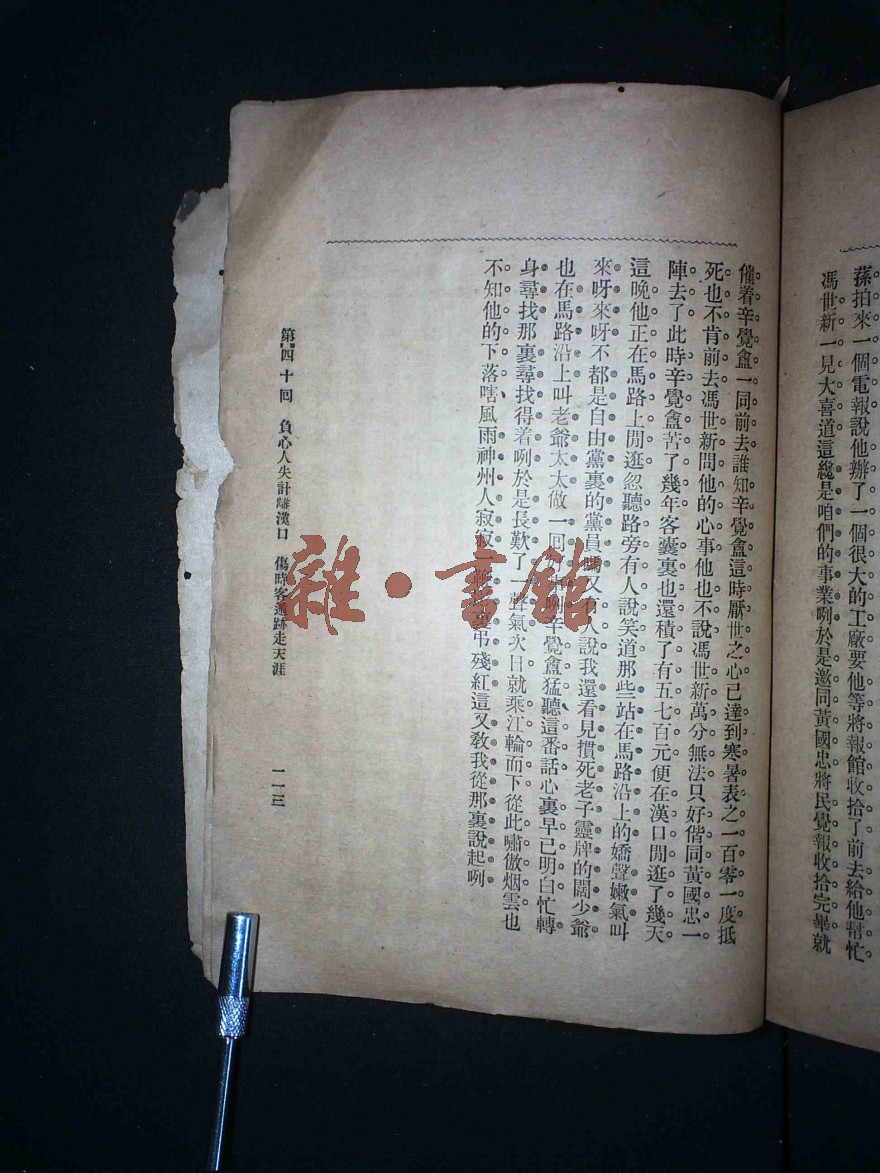 蓀拍來一個電報說他辦了一個很大的工廠要他等將報館收拾了前去給他幫忙
馮世新一見大喜道這纔是咱們的事業咧於是邀同黃國忠將民覺報收拾完畢就
催着辛覺盦一同前去誰知辛覺盦這時厭世之心已達到寒暑表之一百零一度抵
死也不肯前去馮世新問他的心事他也不說馮世新萬分無法只好偕同黃國忠一
陣去了此時辛覺盦苦了幾年客囊裏也還積了有五七百元便在漢口閒逛了幾天
這晚他正在馬路上閒逛忽聽路旁有人說笑道那些站在馬路沿上的嬌聲嫩氣叫
來呀來呀不都是自由黨裏的黨員嗎又有人說我還看見慣死老子靈牌的闊少爺
也在馬路沿上叫老爺太太做一回好事咧辛覺盦猛聽這番話心裏早已明白忙轉
身尋找那裏尋找得着咧於是長歎了一聲氣次日就乘江輪而下從此嘯傲烟雲也
不知他的下落嗐風雨神州人寂寂 弔殘紅這又敎我從那裏說起咧
第四十回 負心人失計離漢口 傷時客遁跡走天涯
一一三
雜·書館